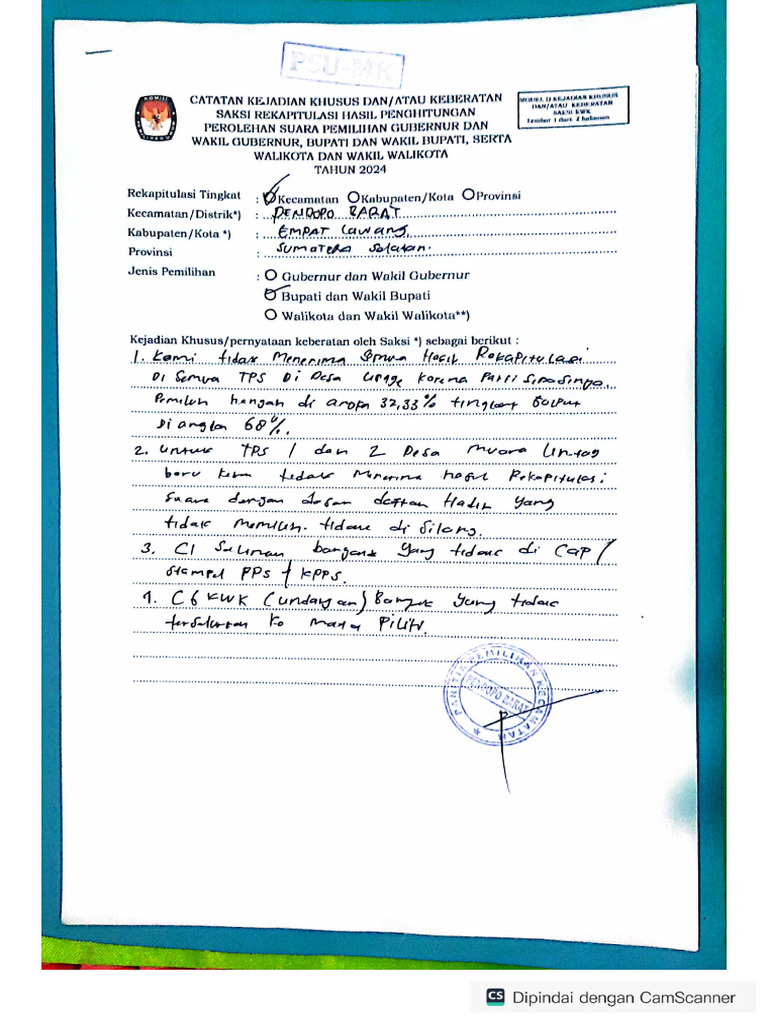 PSU-MK
CATATAN KEJADIAN KHUSUS DAN/ATAU KEBERATAN
SAKSI REKAPITULASI HASIL PENGHITUNGAN
PEROLEHAN SUARA PEMILIHAN GUBERNUR DAN
WAKIL GUBERNUR, BUPATI DAN WAKIL BUPATI, SERTA
WALIKOTA DAN WAKIL WALIKOTA
TAHUN 2024
MODEL D KEJADIAN KHUSUS
DAN/ATAU KEBERATAN
SAKSI KWK
Lembar 1 dari 2 halaman
Rekapitulasi Tingkat : Kecamatan Kabupaten/Kota Provinsi
Kecamatan/Distrik*) : PENDOPO BARAT
Kabupaten/Kota *) : EMPAT LAWANG
Provinsi : SUMATERA Selatan.
Jenis Pemilihan : Gubernur dan Wakil Gubernur
Bupati dan Wakil Bupati
Walikota dan Wakil Walikota**)
Kejadian Khusus/pernyataan keberatan oleh Saksi *) sebagai berikut :
1. Kami tidak Menerima Semua Hasil Rekapitulasi
Di Semua TPS Di Desa Lingge Karena Partisipasinya
Pemilih hanya di angka 32,33% tingkat
Di angka 68%.
2. untuk TPS 1 dan 2 Desa Muara Lintang
baru kami tidak Menerima hasil Rekapitulasi
Suara dengan daftar Hadir yang
tidak Memilih tidak di Silang.
3. C1 Salinan banyak yang tidak di CAP/
Stampel PPS + KPPS.
4. C6 KWK (undangan) Banyak yang tidak
tersalurkan Ke Mata Pilih.
PANITIA PEMILIHAN KECAMATAN
PENDOPO BARAT
CS Dipindai dengan CamScanner